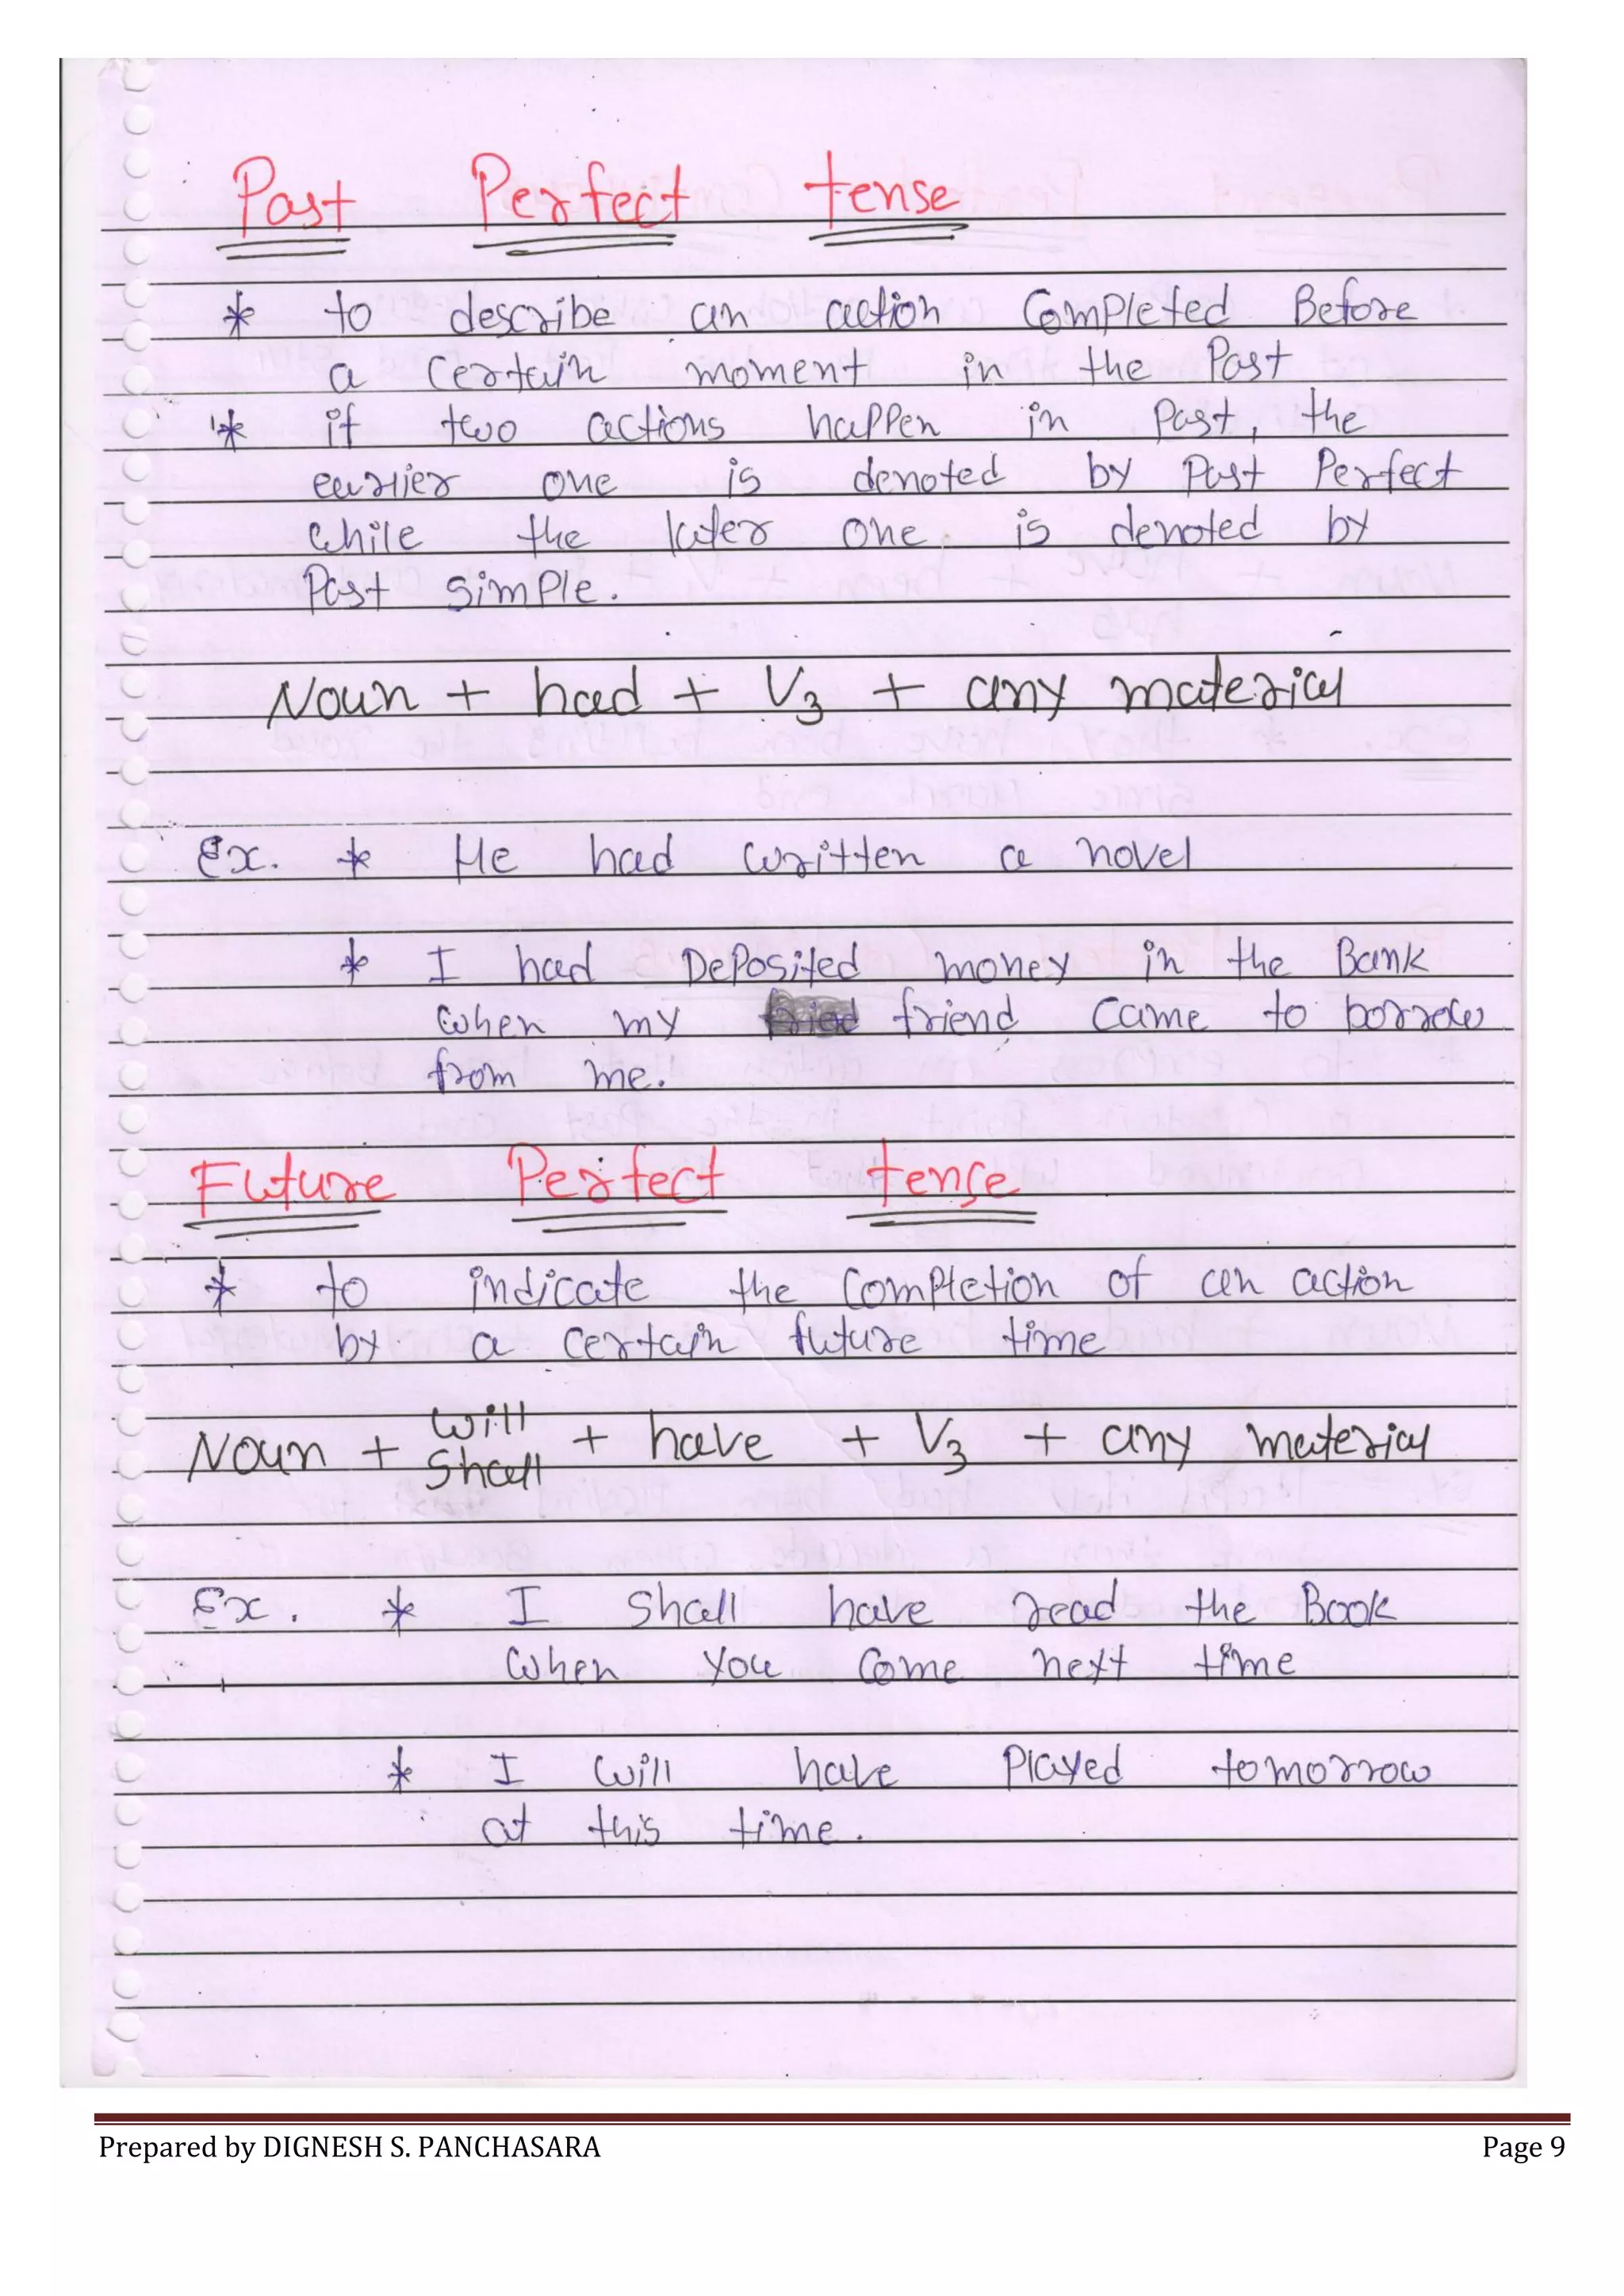 Past Perfect tense
* to describe an action Completed Before
a certain moment in the Past
* if two actions happen in Past, the
earlier one is denoted by Past Perfect
while the later one is denoted by
Past simple.
Noun + had + V3 + any material
Ex. * He had written a novel
* I had Deposited money in the Bank
when my friend came to borrow
from me.
Future Perfect tense
* to indicate the completion of an action
by a certain future time
Noun + will
shall + have + V3 + any material
Ex. * I shall have read the Book
when you come next time
* I will have Played tomorrow
at this time.
Prepared by DIGNESH S. PANCHASARA Page 9